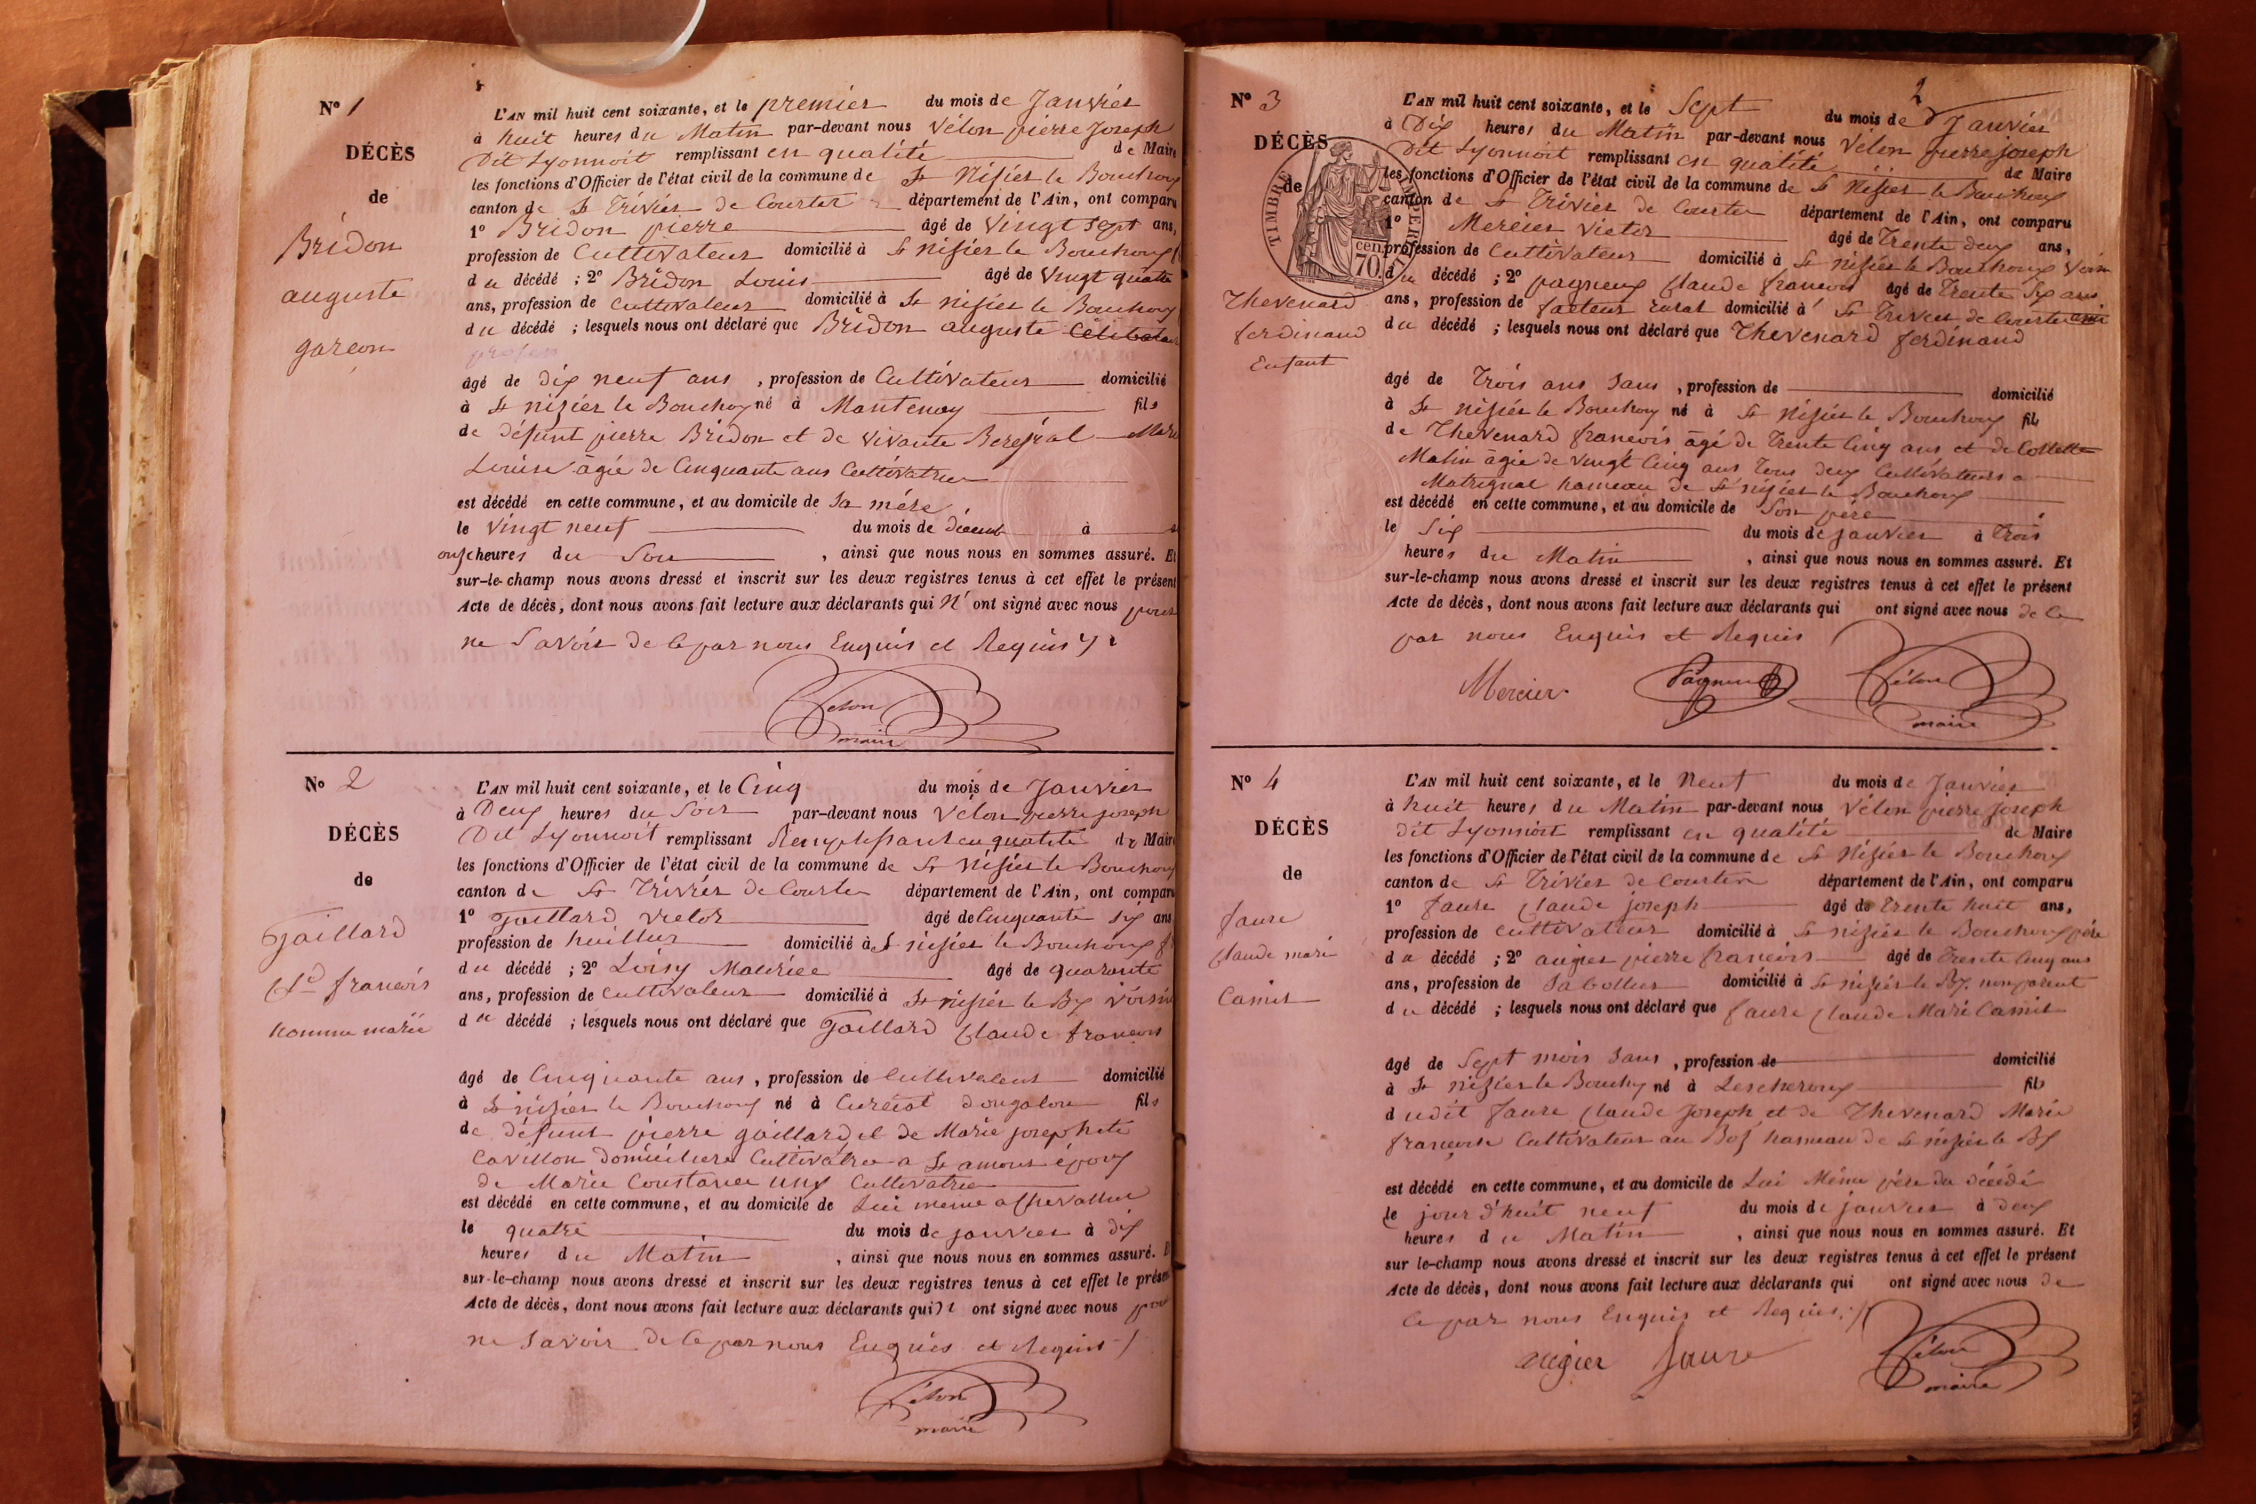 N° 1
DÉCÈS
de
Bridon
auguste
garcon
L'AN mil huit cent soixante, et le premier du mois de Janvier
à huit heures du Matin par-devant nous Vélon pierre Joseph
Dit Lyonnoit remplissant en qualité de Maire
les fonctions d'Officier de l'état civil de la commune de St Nisier le Bouchoux
canton de St Trivier de Courtes département de l'Ain, ont comparu
1° Bridon pierre âgé de Vingt sept ans,
profession de Cultivateur domicilié à St nisier le Bouchoux
du décédé ; 2° Bridon Louis âgé de Vingt quatre
ans, profession de Cultivateur domicilié à St nisier le Bouchoux
du décédé ; lesquels nous ont déclaré que Bridon auguste Célibataire
âgé de dix neuf ans , profession de Cultivateur domicilié
à St nizier le Bouchoy né à Mantenay fils
de défunt pierre Bridon et de Vivante Bereyiat Marie
Louise âgée de Cinquante ans Cultivatrice
est décédé en cette commune, et au domicile de Sa mére
le Vingt neuf du mois de décemb à
onze heures du Soir , ainsi que nous nous en sommes assuré. Et
sur-le-champ nous avons dressé et inscrit sur les deux registres tenus à cet effet le présent
Acte de décès, dont nous avons fait lecture aux déclarants qui N' ont signé avec nous pour
ne Savoir de ce par nous Enquis et Requis
Vélon
maire
N° 2
DÉCÈS
de
Gaillard
Cd francois
homme marié
L'AN mil huit cent soixante, et le Cinq du mois de Janvier
à Deux heures du Soir par-devant nous Vélon pierre joseph
Dit Lyonnoit remplissant Remplissant en qualité de Maire
les fonctions d'Officier de l'état civil de la commune de St Nisier le Bouchoux
canton de St Trivier de Courtes département de l'Ain, ont comparu
1° Gaillard Victor âgé de Cinquante six ans
profession de huillier domicilié à St nisier le Bouchoux
du décédé ; 2° Loisy Maurice âgé de quarante
ans, profession de Cultivateur domicilié à St nisier le Bx voisin
du décédé ; lesquels nous ont déclaré que Gaillard Claude francois
âgé de Cinquante ans , profession de Cultivateur domicilié
à St nisier le Bouchoux né à Curciat dongalon fils
de défunt pierre gaillard et de Marie josephete
Cavillon domiciliere Cultivatrice a St amour époux
de Marie Constance Cultivatrice
est décédé en cette commune, et au domicile de Lui meme a
le quatre du mois de janvier à dix
heures du Matin , ainsi que nous nous en sommes assuré.
sur-le-champ nous avons dressé et inscrit sur les deux registres tenus à cet effet le présent
Acte de décès, dont nous avons fait lecture aux déclarants qui ont signé avec nous pour
ne Savoir de ce par nous Enquis et Requis
Vélon
maire
2
N° 3
DÉCÈS
de
TIMBRE IMPERIAL
70 cen.
Thevenard
ferdinand
Enfant
L'AN mil huit cent soixante, et le Sept du mois de Janvier
à Dix heures du Matin par-devant nous Vélon pierre joseph
Dit Lyonnoit remplissant en qualité de Maire
les fonctions d'Officier de l'état civil de la commune de St Nisier le Bouchoux
canton de St Trivier de Courtes département de l'Ain, ont comparu
1° Mercier Victor âgé de Trente deux ans,
profession de Cultivateur domicilié à St nisier le Bouchoux Voisin
du décédé ; 2° pagneux Claude francois âgé de Trente Six ans
ans, profession de facteur rural domicilié à St Trivier de Courtes ami
du décédé ; lesquels nous ont déclaré que Thevenard ferdinand
âgé de Trois ans Sans , profession de domicilié
à St nisier le Bouchoux né à St Nisier le Bouchoux fils
de Thevenard francois âgé de Trente Cinq ans et de Collette
Matin âgée de vingt Cinq ans Tous deux Cultivateurs a
Matrignat hameau de St nisier le Bouchoux
est décédé en cette commune, et au domicile de Son père
le Six du mois de janvier à Trois
heures du Matin , ainsi que nous nous en sommes assuré. Et
sur-le-champ nous avons dressé et inscrit sur les deux registres tenus à cet effet le présent
Acte de décès, dont nous avons fait lecture aux déclarants qui ont signé avec nous de ce
par nous Enquis et Requis
Mercier Pagneux Vélon
maire
N° 4
DÉCÈS
de
faure
Claude marie
Camit
L'AN mil huit cent soixante, et le Neuf du mois de Janvier
à huit heures du Matin par-devant nous Vélon pierre joseph
dit Lyonnoit remplissant en qualité de Maire
les fonctions d'Officier de l'état civil de la commune de St Nisier le Bouchoux
canton de St Trivier de Courtes département de l'Ain, ont comparu
1° faure Claude joseph âgé de Trente huit ans,
profession de cultivateur domicilié à St nisier le Bouchoux père
du décédé ; 2° augier pierre francois âgé de Trente Cinq ans
ans, profession de Sabottier domicilié à St nisier le Bx. non parent
du décédé ; lesquels nous ont déclaré que faure Claude Marie Camit
âgé de Sept mois Sans , profession de domicilié
à St nisier le Bouchx né à Lescheroux fils
dudit faure Claude Joseph et de Thevenard Marie
francoise Cultivateur au Bos hameau de St nisier le Bx
est décédé en cette commune, et au domicile de Lui Même père du décédé
le jour d'huit neuf du mois de janvier à deux
heures du Matin , ainsi que nous nous en sommes assuré. Et
sur le-champ nous avons dressé et inscrit sur les deux registres tenus à cet effet le présent
Acte de décès, dont nous avons fait lecture aux déclarants qui ont signé avec nous de
ce par nous Enquis et Requis
augier faure Vélon
maire